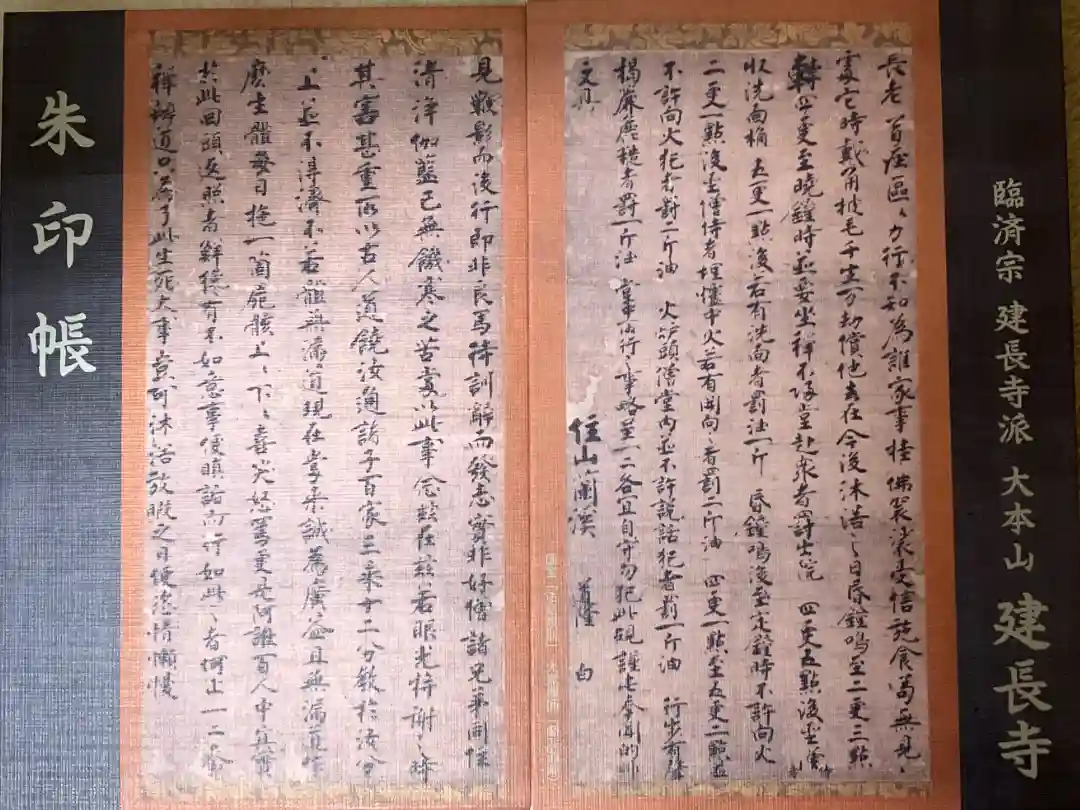 臨済宗 建長寺派 大本山 建長寺
長老首座區〻力行不知為誰家事挂佛袈裟受信施食苟無見〻
處它時戴角披毛千生万劫償他去在今後沐浩之日昏鐘鳴至二更三點
四更至曉鐘時並要坐禅不歸堂赴衆者罸出院 四更五點後
収洗面桶 五更一點後若有洗面者罸油一斤 昏鐘鳴後至定鐘時不許向火
二更一點後 僧侍者埋爐中火若有開向〻者罰二斤油 四更一點至五更二點並
不許向火犯者罸二斤油 火炉頭僧堂内並不許説話犯者罰一斤油 行歩有聲
揭簾麁 者罰一斤油 堂中行事略呈一二各宜自守勿犯此規謹 奉聞
住山蘭溪 道隆 白
見鞭影而後行即非良馬待訓辭而發志實非好僧諸兄弟同住
清浄伽藍已無饑寒之苦當以此事念兹在兹若眼光将謝之時
其害甚重所以古人道饒汝通諸子百家三乗十二分教於汝分
上並不得濟不若體無漏道現在當来誠為廣益且無漏道作
麽生體毎日拖一箇屍骸上〻下〻喜笑怒罵更是阿誰百人中真實
於此回頭返照者鮮纔有不如意事便瞋詬而行如此〻者何止一二參
禅辨道只為了此生死大事豈可沐浴放暇之日便恣情懶慢
朱印帳